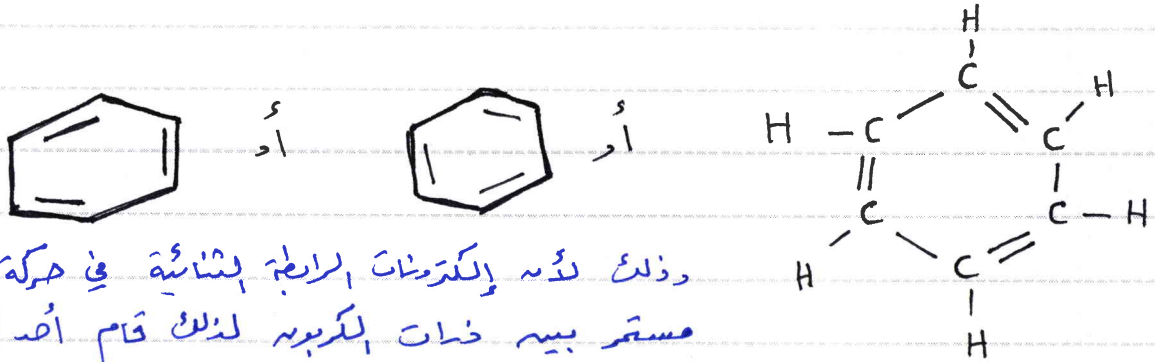 H
C
H
أو
أو
H
C
C
C
C
H
H
C
H
وذلك لأن إلكترونات الرابطة الثنائية في حركة
مستمر بين ذرات الكربون لذلك قام أحد